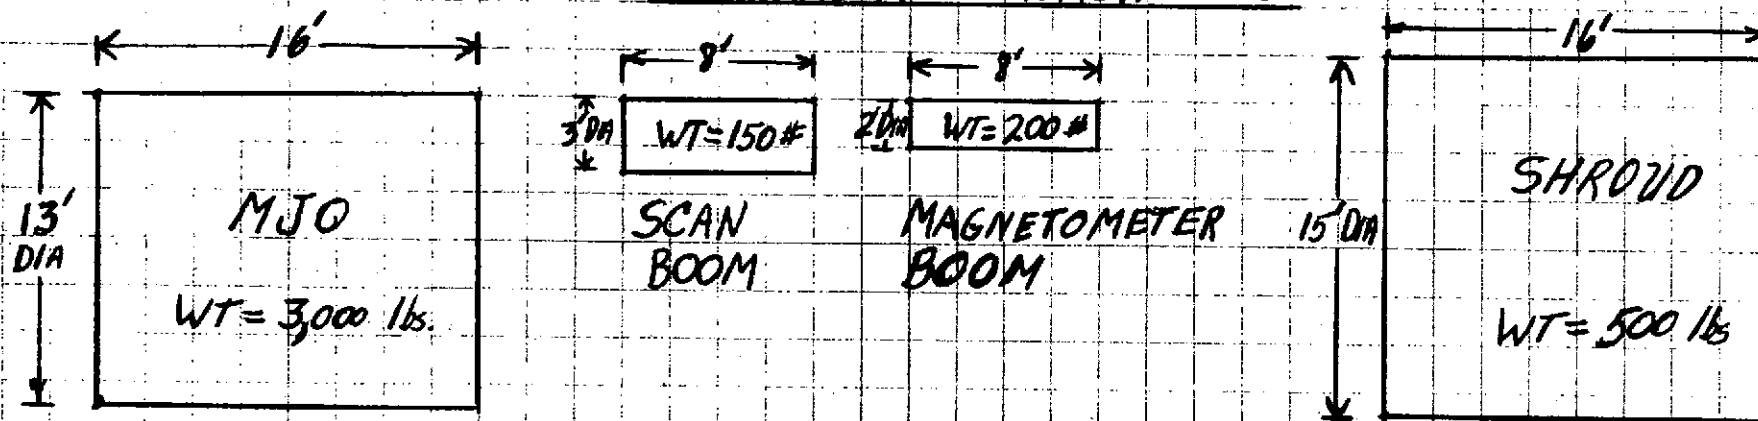 16'
13'
DIA
MJO
WT = 3,000 lbs.
8'
3' DIA
WT=150#
SCAN
BOOM
8'
2' DIA
WT=200#
MAGNETOMETER
BOOM
16'
15' DIA
SHROUD
WT = 500 lbs